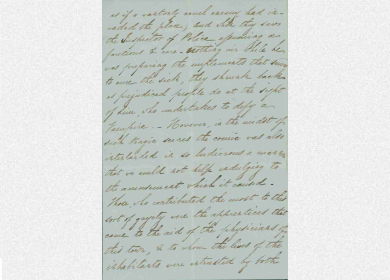 as if a certainly much enemy had in-
vaded the place; and when they saw
the Inspector of Police appearing a
to me - nothing in while he
was preparing the implements that were
to use the sick, they shrunk back
as prejudiced people do at the sight
of one, who undertakes to defy a
Vampire -- However, in the midst of
such tragic scenes the comic was also
interlarded in so ludicrous a manner
that we could not help indulging to
the amusement which it caused -
Those, who contributed the most to this
sort of gayety were the apprentices that
came to the aid of the physicians of
this town, & to whom the lives of the
inhabitants were intrusted by both